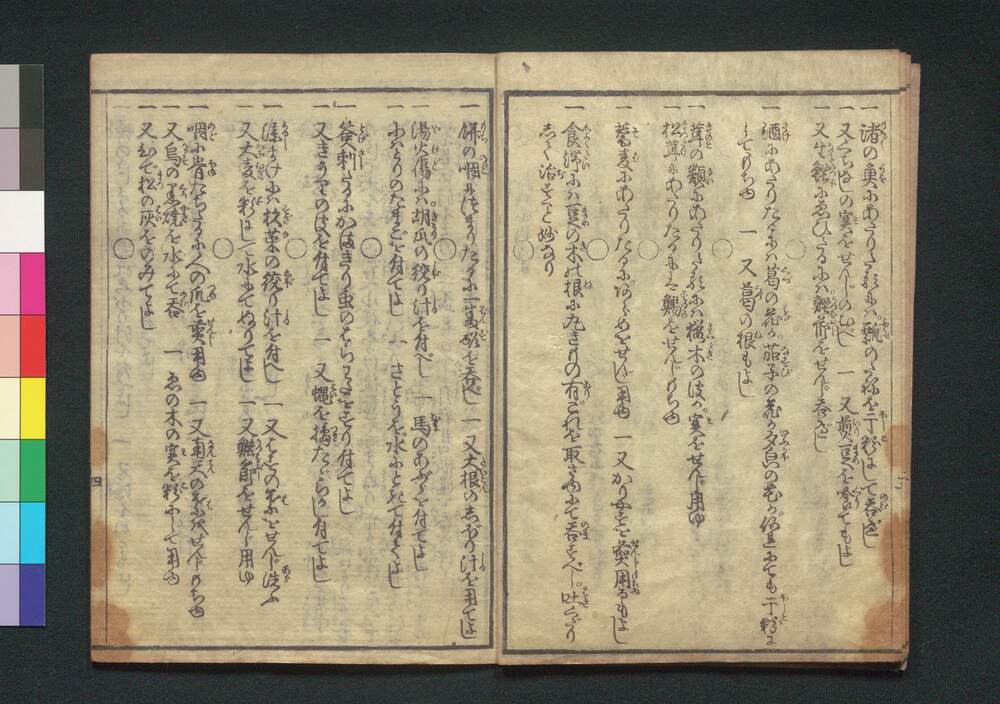 一 諸の魚にあたりたるには瓢のたねを干粉にして呑べし
一 又くちなしの実をせんじのむべし 一 又黒豆を喰てもよし
一 又生鰹にゑひたるには鰹節をせんじ呑べし
一 酒にあたりたるには葛の花か茄子の花か夕㒵の花か何れにても干粉に
して用ゆ 一 又葛の根もよし
一 茸の類にあたりたるには桜木の皮か実をせんじ用ゆ
松茸にあたりたるには鯣をせんじ用ゆ
一 蕎麦にあたりたるにはあらめをせんじ用ゆ 一 又かりやすを煎用るもよし
一 食滞には豆の木の根に丸きもの有これを取さゆにて呑べし吐くだり
しさく治すこと妙なり
一 餅の咽につまりたるには酢を呑べし 一 又大根のしぼり汁を用てよし
一 湯火傷には胡瓜の絞り汁を付べし 一 馬のあぶらを付てよし
一 又にはとりのたまごを付てよし 一 さとうを水にときて付てよし
一 簽刺たるにかまきり虫のはらわたをすり付てよし
一 又きうりのはを付てよし 一 又蠅を摘たゝらし付てよし
一 漆まけには杉菜の絞り汁を付べし 一 又はすの葉をせんじ洗ふ
一 又大麦を粉にして水にてぬりてよし 一 又鰹節をせんじ用ゆ
一 咽に骨たちたるに人の爪を煎用ゆ 一 又南天の葉をせんじ用ゆ
一 又烏の黒焼を水にて呑 一 ゑの木の実を粉にして用ゆ
一 又酢にて松の灰をのみてよし